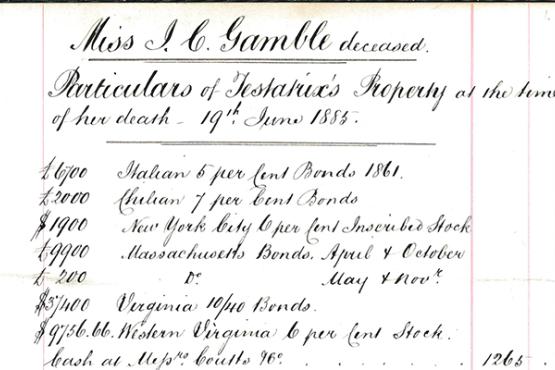 Miss I. C. Gamble deceased.
Particulars of Testatrix's Property at the time
of her death - 19th. June 1885.
£6700 Italian 5 per Cent Bonds 1861.
£2000 Chilian 7 per Cent Bonds
$1900 New York City 6 per Cent Inscribed Stock
£9900 Massachusetts Bonds. April & October
£ 200 Do. May & Novr.
$37400 Virginia 10/40 Bonds.
$9756.66. Western Virginia 6 per Cent Stock.
Cash at Messrs Coutts &Co . . . . . . 1265